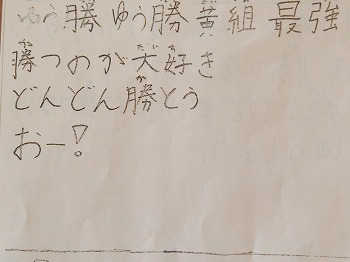 ゆう勝ゆう勝黄組最強
勝つのが大好き
どんどん勝とう
おー!